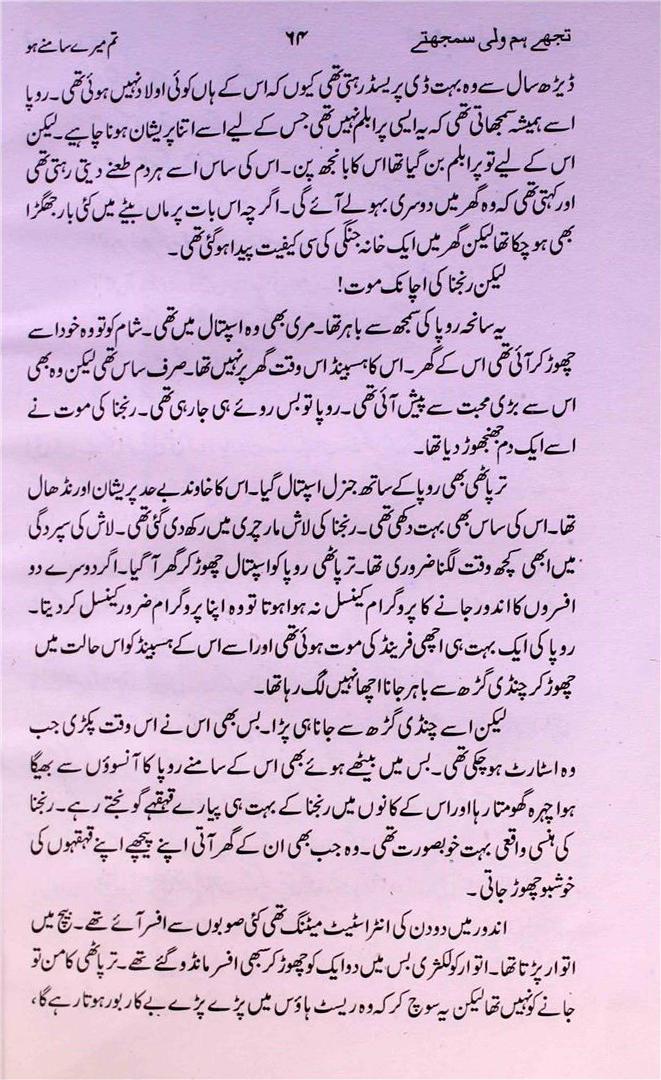 تجھے ہم ولی سمجھتے ۶۴ تم میرے سامنے ہو
ڈیڑھ سال سے وہ بہت ڈی پریسڈ رہتی تھی کیوں کہ اس کے ہاں کوئی اولاد نہیں ہوئی تھی۔ روپا
اسے ہمیشہ سمجھاتی تھی کہ یہ ایسی پرابلم نہیں تھی جس کے لیے اسے اتنا پریشان ہونا چاہیے۔ لیکن
اس کے لیے تو پرابلم بن گیا تھا اس کا بانجھ پن۔ اس کی ساس اسے ہر دم طعنے دیتی رہتی تھی
اور کہتی تھی کہ وہ گھر میں دوسری بہو لے آئے گی۔ اگرچہ اس بات پر ماں بیٹے میں کئی بار جھگڑا
بھی ہو چکا تھا لیکن گھر میں ایک خانہ جنگی کی سی کیفیت پیدا ہو گئی تھی۔
لیکن رنجنا کی اچانک موت!
یہ سانحہ روپا کی سمجھ سے باہر تھا۔ مری بھی وہ اسپتال میں تھی۔ شام کو تو وہ خود اسے
چھوڑ کر آئی تھی اس کے گھر۔ اس کا ہسبینڈ اس وقت گھر پر نہیں تھا۔ صرف ساس تھی لیکن وہ بھی
اس سے بڑی محبت سے پیش آئی تھی۔ روپا تو بس روئے ہی جا رہی تھی۔ رنجنا کی موت نے
اسے ایک دم جھنجھوڑ دیا تھا۔
ترپاٹھی بھی روپا کے ساتھ جنرل اسپتال گیا۔ اس کا خاوند بے حد پریشان اور نڈھال
تھا۔ اس کی ساس بھی بہت دکھی تھی۔ رنجنا کی لاش مارچری میں رکھ دی گئی تھی۔ لاش کی سپردگی
میں ابھی کچھ وقت لگنا ضروری تھا۔ ترپاٹھی روپا کو اسپتال چھوڑ کر گھر آ گیا۔ اگر دوسرے دو
افسروں کا اندور جانے کا پروگرام کینسل نہ ہوا ہوتا تو وہ اپنا پروگرام ضرور کینسل کر دیتا۔
روپا کی ایک بہت ہی اچھی فرینڈ کی موت ہوئی تھی اور اسے اس کے ہسبینڈ کو اس حالت میں
چھوڑ کر چنڈی گڑھ سے باہر جانا اچھا نہیں لگ رہا تھا۔
لیکن اسے چنڈی گڑھ سے جانا ہی پڑا۔ بس بھی اس نے اس وقت پکڑی جب
وہ اسٹارٹ ہو چکی تھی۔ بس میں بیٹھے ہوئے بھی اس کے سامنے روپا کا آنسوؤں سے بھیگا
ہوا چہرہ گھومتا رہا اور اس کے کانوں میں رنجنا کے بہت ہی پیارے قہقہے گونجتے رہے۔ رنجنا
کی ہنسی واقعی بہت خوبصورت تھی۔ وہ جب بھی ان کے گھر آتی اپنے پیچھے اپنے قہقہوں کی
خوشبو چھوڑ جاتی۔
اندور میں دو دن کی انٹراسٹیٹ میٹنگ تھی کئی صوبوں سے افسر آئے تھے۔ بیچ میں
اتوار پڑتا تھا۔ اتوار کو لکژری بس میں دو ایک کو چھوڑ کر سبھی افسر مانڈو گئے تھے۔ ترپاٹھی کا من تو
جانے کو نہیں تھا لیکن یہ سوچ کر کہ وہ ریسٹ ہاؤس میں پڑے پڑے بے کار بور ہوتا رہے گا،